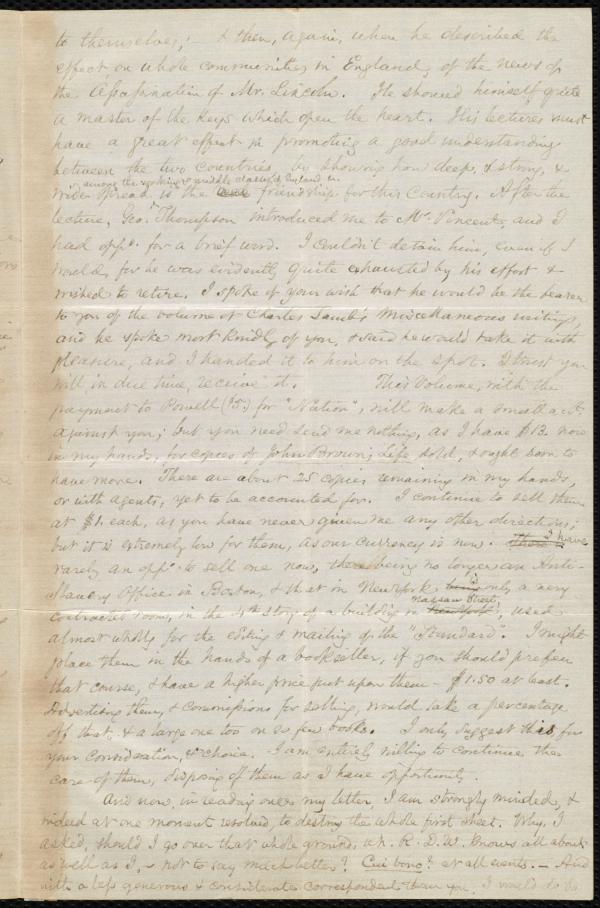 to themselves; & then, again, when he described the
effect, on whole communities in England, of the news of
the Assassination of Mr. Lincoln. He showed himself quite
a master of the keys which open the heart. His lectures must
have a great effect in promoting a good understanding
between the two countries, by showing how deep, & strong, &
among the working & middle classes of England is
wide-spread is the friendship for this country. After the
lecture, Geo. Thompson introduced me to Mr. Vincent, and I
had oppy. for a brief word. I couldn't detain him, even if I
would, for he was evidently quite exhausted by his effort &
wished to retire. I spoke of your wish that he would be the bearer
to you of the volume of Charles Lamb's Miscellaneous writings,
and he spoke most kindly of you, & said he would take it with
pleasure, and I handed it to him on the spot. I trust you
will in due time, receive it. This volume, with the
payment to Powell ($5.) for "Nation", will make a small acct.
against you; but you need send me nothing, as I have $13. now
in my hands, for copies of John Brown's Life sold, & ought soon to
have more. There are about 25 copies remaining in my hands,
or with agents, yet to be accounted for. I continue to sell them
at $1. each, as you have never given me any other directions;
but it is extremely low for them, as our currency is now. There is I have
rarely an oppy. to sell one now, there being no longer an Anti-
Slavery Office in Boston, & that in New York, being only a very
Nassau Street,
contracted room, in the 4th story of a building in New York, used
almost wholly for the editing & mailing of the "Standard". I might
place them in the hands of a bookseller, if you should prefer
that course, & have a higher price put upon them - $1.50 at least.
Advertising them, & commissions for selling, would take a percentage
off that, & a large one too on so few books. I only suggest this for
your consideration, & choice. I am entirely willing to continue the
care of them, disposing of them as I have opportunity.
And now, in reading over my letter, I am strongly minded, &
indeed at one moment resolved, to destroy the whole first sheet. Why, I
asked, should I go over that whole ground, wh. R. D. W. knows all about
as well as I, - not to say much better? Cui bono? at all events. - And
with a less generous & considerate correspondent than you, I would do so